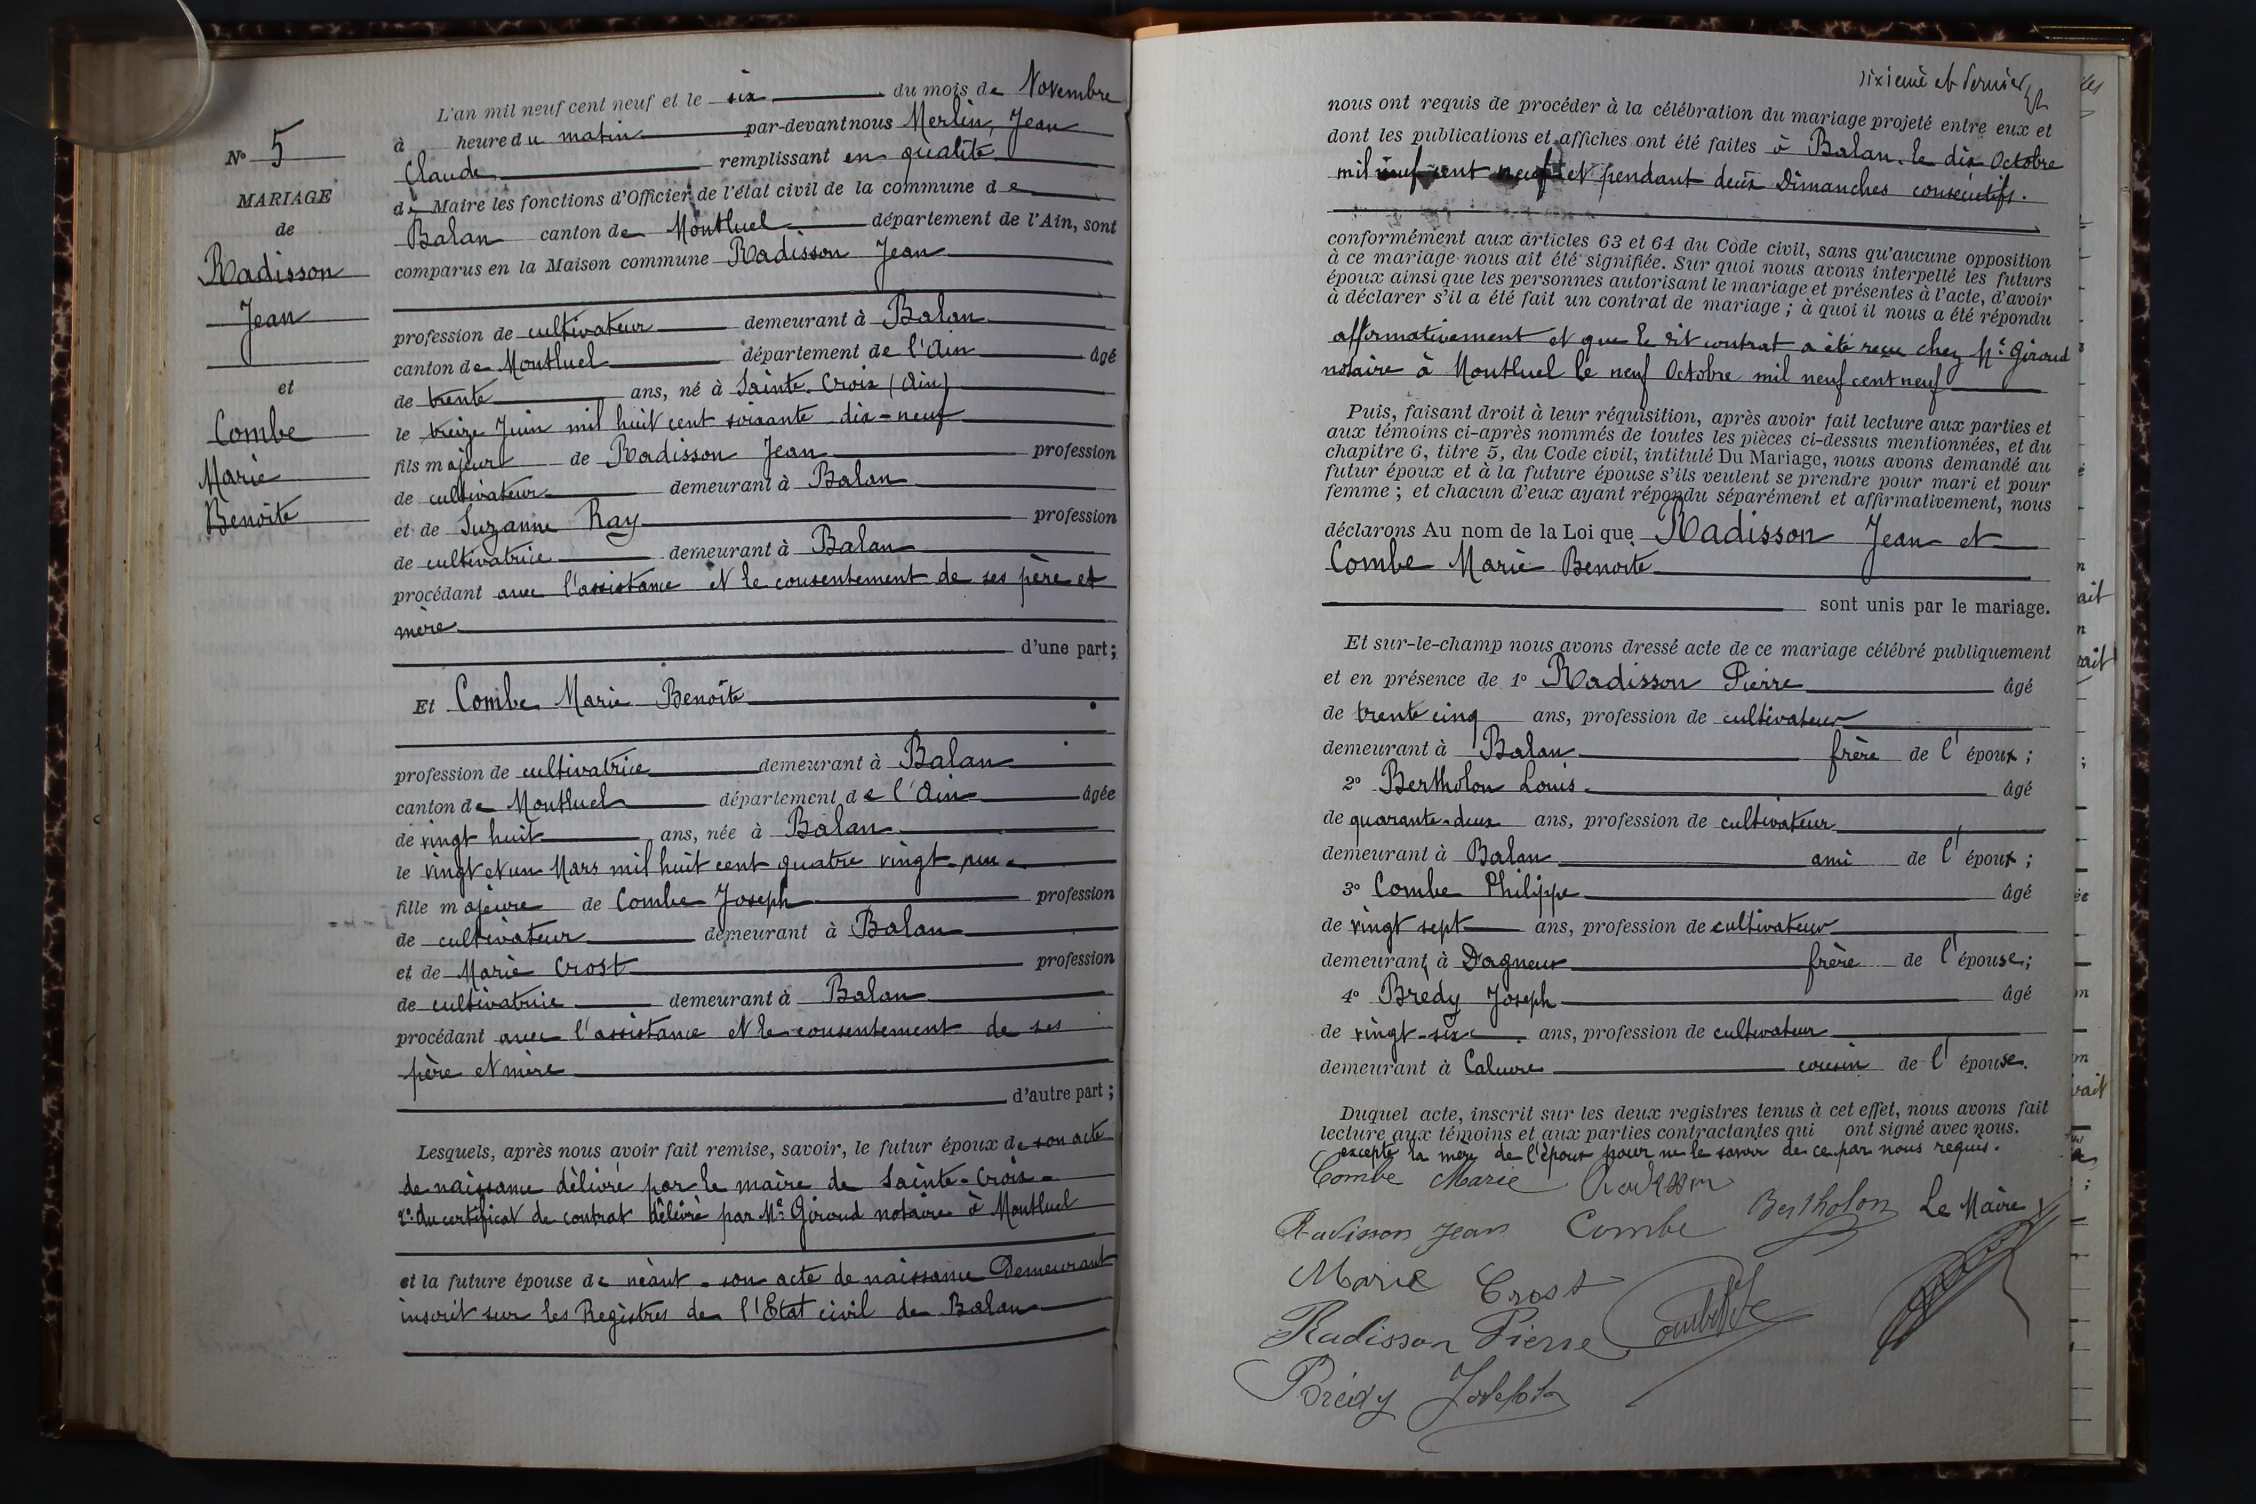 L'an mil neuf cent neuf et le six du mois de Novembre
à heure du matin par-devant nous Merlin, Jean
Claude remplissant en qualité
de Maire les fonctions d'Officier de l'état civil de la commune de
Balan canton de Montluel département de l'Ain, sont
comparus en la Maison commune Radisson Jean
profession de cultivateur demeurant à Balan
canton de Montluel département de l'Ain âgé
de trente ans, né à Sainte-Croix (Ain)
le treize Juin mil huit cent soixante dix-neuf
fils majeur de Radisson Jean profession
de cultivateur demeurant à Balan
et de Suzanne Ray profession
de cultivatrice demeurant à Balan
procédant avec l'assistance et le consentement de ses père et
mère
d'une part;
Et Combe Marie Benoîte
profession de cultivatrice demeurant à Balan
canton de Montluel département de l'Ain âgée
de vingt huit ans, née à Balan
le vingt et un Mars mil huit cent quatre vingt-un
fille majeure de Combe Joseph profession
de cultivateur demeurant à Balan
et de Marie Crost profession
de cultivatrice demeurant à Balan
procédant avec l'assistance et le consentement de ses
père et mère
d'autre part;
Lesquels, après nous avoir fait remise, savoir, le futur époux de son acte
de naissance délivré par le maire de Sainte-Croix
2° du certificat de contrat délivré par Me Giroud notaire à Montluel
et la future épouse de néant - son acte de naissance Demeurant
inscrit sur les Registres de l'Etat civil de Balan
No 5
MARIAGE
de
Radisson
Jean
et
Combe
Marie
Benoîte
sixième et dernier
nous ont requis de procéder à la célébration du mariage projeté entre eux et
dont les publications et affiches ont été faites à Balan, le dix Octobre
mil neuf cent neuf et pendant deux Dimanches consécutifs.
conformément aux articles 63 et 64 du Code civil, sans qu'aucune opposition
à ce mariage nous ait été signifiée. Sur quoi nous avons interpellé les futurs
époux ainsi que les personnes autorisant le mariage et présentes à l'acte, d'avoir
à déclarer s'il a été fait un contrat de mariage; à quoi il nous a été répondu
affirmativement et que le dit contrat a été reçu chez Me Giroud
notaire à Montluel le neuf Octobre mil neuf cent neuf
Puis, faisant droit à leur réquisition, après avoir fait lecture aux parties et
aux témoins ci-après nommés de toutes les pièces ci-dessus mentionnées, et du
chapitre 6, titre 5, du Code civil, intitulé Du Mariage, nous avons demandé au
futur époux et à la future épouse s'ils veulent se prendre pour mari et pour
femme; et chacun d'eux ayant répondu séparément et affirmativement, nous
déclarons Au nom de la Loi que Radisson Jean et
Combe Marie Benoîte
sont unis par le mariage.
Et sur-le-champ nous avons dressé acte de ce mariage célébré publiquement
et en présence de 1° Radisson Pierre âgé
de trente cinq ans, profession de cultivateur
demeurant à Balan frère de l'époux;
2° Bertholon Louis âgé
de quarante-deux ans, profession de cultivateur
demeurant à Balan ami de l'époux;
3° Combe Philippe âgé
de vingt sept ans, profession de cultivateur
demeurant à Dagneux frère de l'épouse;
4° Bredy Joseph âgé
de vingt-six ans, profession de cultivateur
demeurant à Caluire cousin de l'épouse.
Duquel acte, inscrit sur les deux registres tenus à cet effet, nous avons fait
lecture aux témoins et aux parties contractantes qui ont signé avec nous.
excepté la mère de l'époux pour ne le savoir de ce par nous requis.
Combe Marie Radisson
Radisson Jean Combe Bertholon Le Maire
Marie Crost
Radisson Pierre
Brédy Joseph